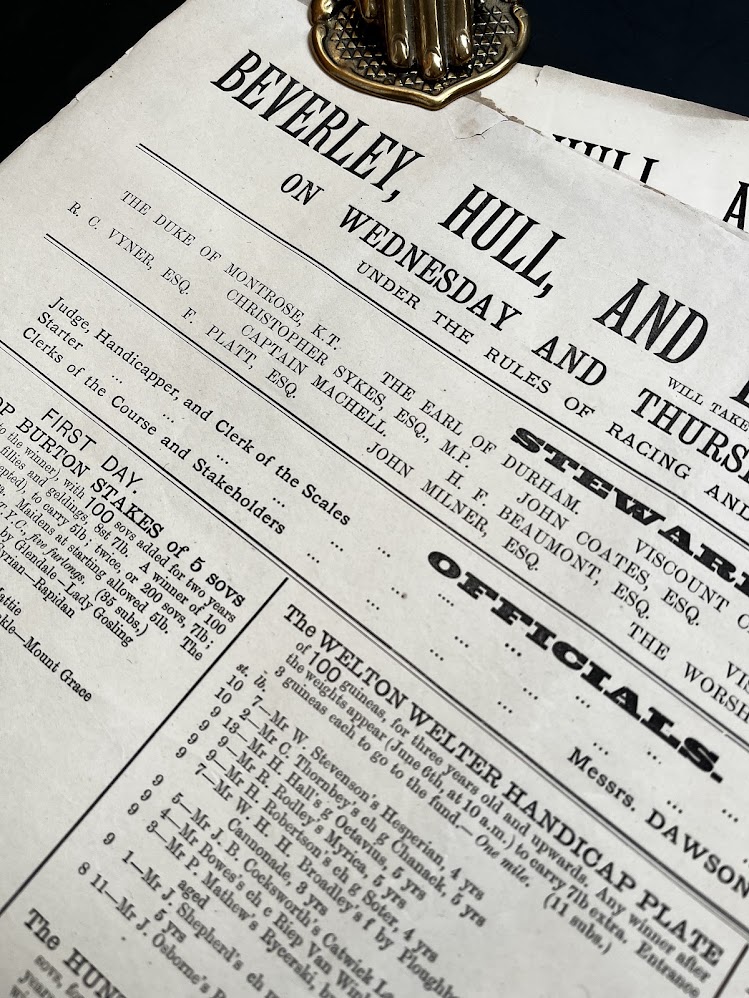 BEVERLEY, HULL, AND
HULL
WILL TAKE
ON WEDNESDAY AND
UNDER THE RULES OF RACING AND
THE DUKE OF MONTROSE, K.T.
THE EARL OF DURHAM.
VISCOUNT
R. C. VYNER, ESQ.
CHRISTOPHER SYKES, ESQ., M.P.
JOHN COATES, ESQ.
CAPTAIN MACHELL.
H. F. BEAUMONT, ESQ.
F. PLATT, ESQ.
JOHN MILNER, ESQ.
THE
OFFICIALS.
Judge, Handicapper, and Clerk of the Scales ... ...
Starter ... ... ... ...
Clerks of the Course and Stakeholders ... ... ...
Messrs. DAWSON
FIRST DAY.
BURTON STAKES of 5 sovs
to the winner), with 100 sovs added for two years
fillies and geldings, 8st 7lb. A winner of 100
to carry 5lb; twice, or 200 sovs, 7lb;
Maidens at starting allowed 5lb. The
five furlongs. (35 subs.)
by Glendale—Lady Gosling
Rapidan
Mount Grace
The WELTON WELTER HANDICAP PLATE
of 100 guineas, for three years old and upwards. Any winner after
the weights appear (June 6th, at 10 a.m.) to carry 7lb extra. Entrance
3 guineas each to go to the fund.—One mile. (11 subs.)
st. lb.
10 7—Mr W. Stevenson's Hesperian, 4 yrs
10 2—Mr C. Thornbey's ch g Chanack, 5 yrs
9 13—Mr H. Hall's g Octavius, 5 yrs
9 9—Mr R. Rodley's Myrica, 5 yrs
9 9—Mr H. Robertson's ch g Soter, 4 yrs
9 7—Mr W. H. H. Broadley's f by
Cannonade, 3 yrs
9 5—Mr J. B. Cocksworth's Catwick
9 4—Mr Bowes's ch c Riep Van
9 3—Mr P. Mathew's Rycerski,
aged
9 1—Mr J. Shepherd's ch
5 yrs
8 11—Mr J. Osborne's
The
sovs,
years